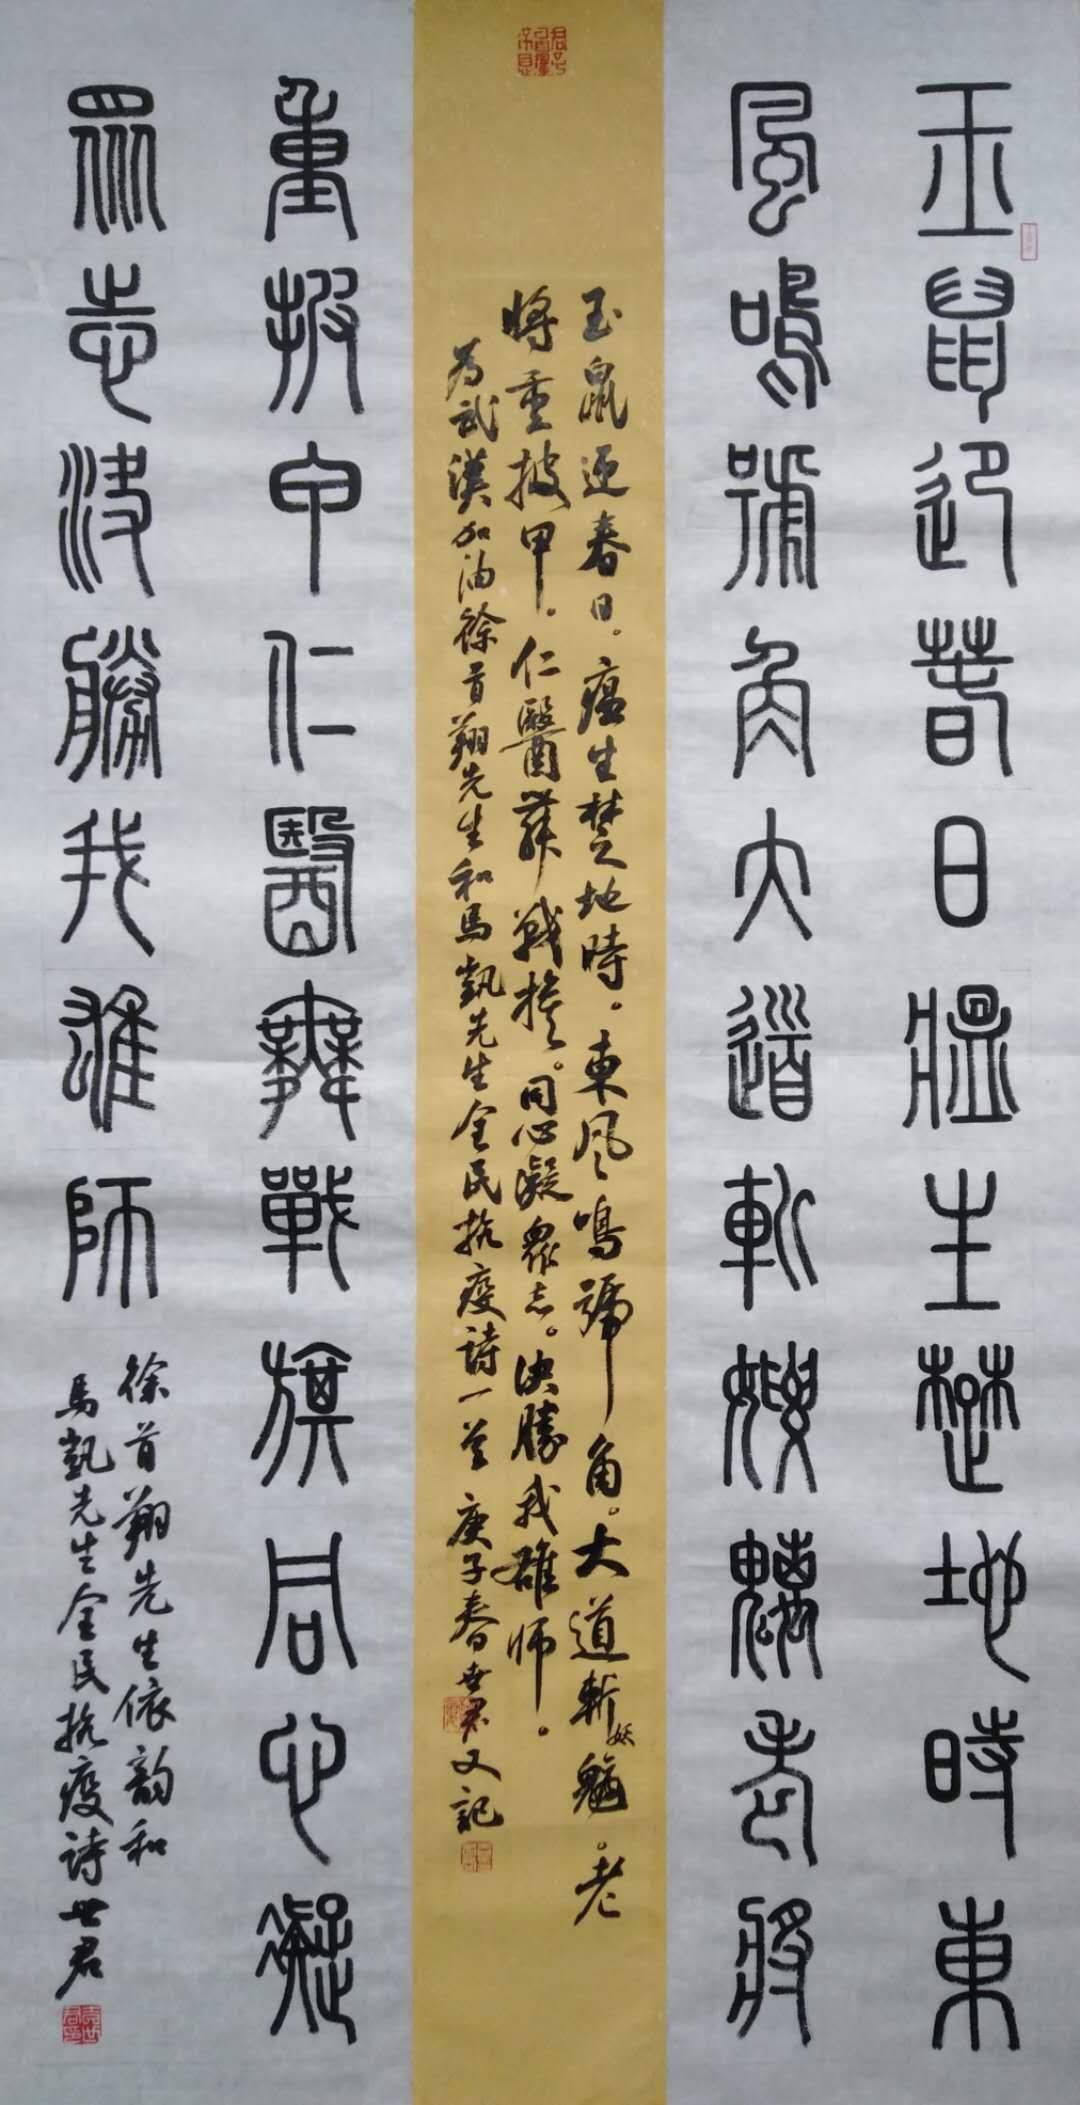 玉鼠迎春日瘟生楚地時東
風鳴號角大道斬妖魑老將
玉鼠迎春日。瘟生楚地時。東風鳴號角。大道斬妖魑。老
將重披甲。仁醫舞戰旗。同心凝衆志。決勝我雄師。
為武漢加油徐首翔先生和馬凱先生全民抗疫詩一首 庚子春世君又記
重披甲仁醫舞戰旗同心凝
衆志決勝我雄師
徐首翔先生依韵和
馬凱先生全民抗疫詩 世君